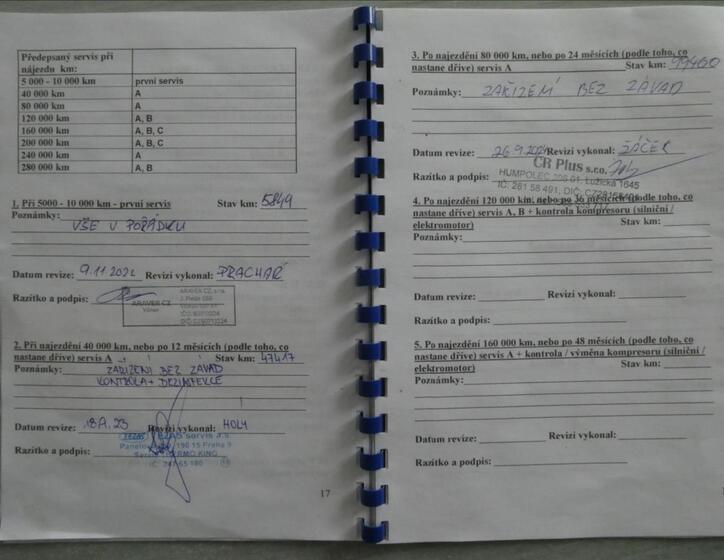 Předepsaný servis při
nájezdu km:
5 000 - 10 000 km první servis
40 000 km A
80 000 km A
120 000 km A, B
160 000 km A, B, C
200 000 km A, B, C
240 000 km A
280 000 km A, B
1. Při 5000 - 10 000 km - první servis Stav km: 5849
Poznámky: VŠE V POŘÁDKU
Datum revize: 9.11.2022 Revizi vykonal: PRACHAŘ
Razítko a podpis:
ARAVER CZ, s.r.o.
ARAVER CZ
2. Při najezdění 40 000 km, nebo po 12 měsících (podle toho, co
nastane dříve) servis A Stav km: 47417
Poznámky: ZAŘÍZENÍ BEZ ZÁVAD
KONTROLA + DEZINFEKCE
Datum revize: Revizi vykonal: HOLÝ
servis a.s.
190 15 Praha 9
Razítko a podpis: THERMO KING
17
3. Po najezdění 80 000 km, nebo po 24 měsících (podle toho, co
nastane dříve) servis A Stav km: 99460
Poznámky: ZAŘÍZENÍ BEZ ZÁVAD
Datum revize: 26.9.2024 Revizi vykonal: ŽÁČEK
CR Plus s.r.o.
Razítko a podpis: HUMPOLEC 396 01, Lužická 1645
IČ: 281 58 491, DIČ:
4. Po najezdění 120 000 km, nebo po 36 měsících (podle toho, co
nastane dříve) servis A, B + kontrola kompresoru (silniční /
elektromotor) Stav km:
Poznámky:
Datum revize: Revizi vykonal:
Razítko a podpis:
5. Po najezdění 160 000 km, nebo po 48 měsících (podle toho, co
nastane dříve) servis A + kontrola / výměna kompresoru (silniční /
elektromotor) Stav km:
Poznámky:
Datum revize: Revizi vykonal:
Razítko a podpis: